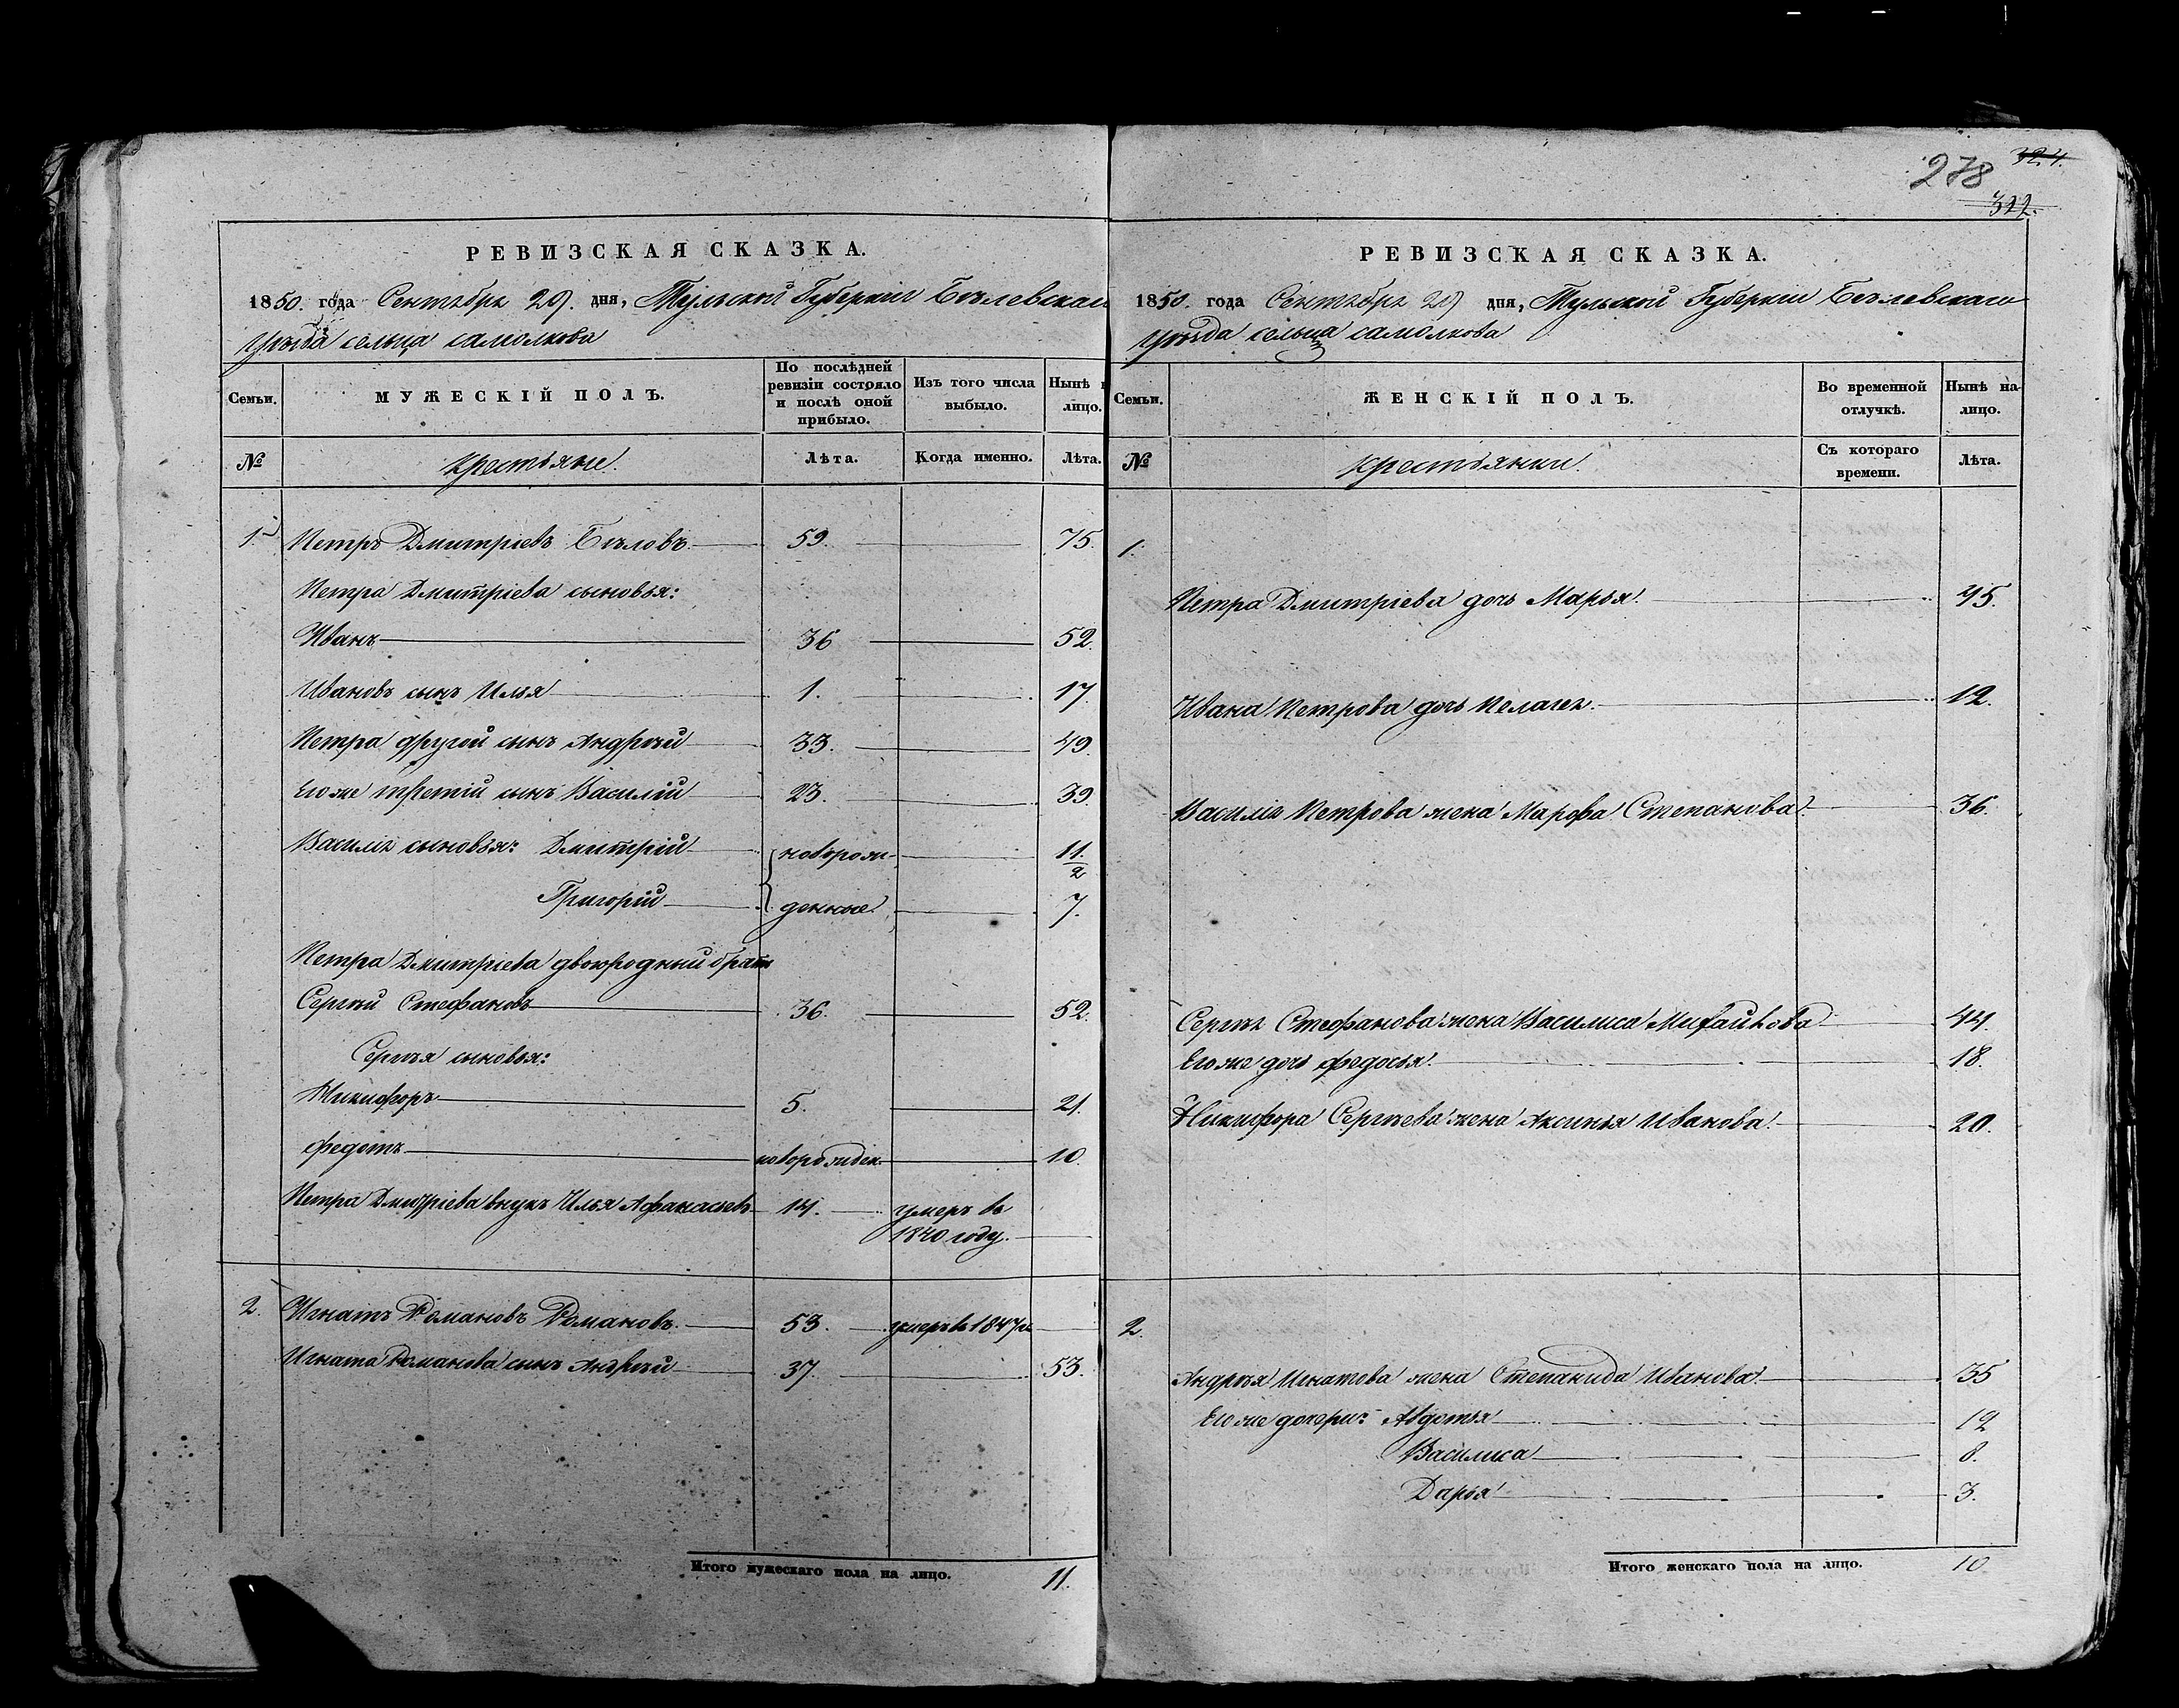 278 324.
322.
РЕВИЗСКАЯ СКАЗКА.
1850. года Сентября 29. дня, Тульской Губерніи Бѣлевскаго
Уѣзда сельца самолкова
Семьи. МУЖЕСКІЙ ПОЛЪ. По послѣдней ревизіи состояло и послѣ оной прибыло. Изъ того числа выбыло. Нынѣ лицо.
№ крестьяне. Лѣта. Когда именно. Лѣта.
1 Петръ Дмитріевъ Бѣловъ 59. 75.
Петра Дмитріева сыновья:
Иванъ 36 52.
Ивановъ сынъ Илья 1. 17
Петра другой сынъ Андрѣй 33. 49.
Его же третій сынъ Василій 23. 39.
Василія сыновья: Дмитрій новорож- 11/2
Григорій денные 7.
Петра Дмитріева двоюродный братъ
Сергѣй Стефановъ 36. 52.
Сергѣя сыновья:
Никифоръ 5. 21.
Федотъ новорожден. 10.
Петра Дмитріева внукъ Илья Афанасьевъ 14. умеръ въ
1840 году.
2. Игнатъ Романовъ Романовъ. 53. умеръ въ 1847 г.
Игната Романова сынъ Андрѣй 37. 53.
Итого мужескаго пола на лицо. 11.
РЕВИЗСКАЯ СКАЗКА.
1850. года Сентября 29 дня, Тульской Губерніи Бѣлевскаго
Уѣзда сельца самолкова
Семьи. ЖЕНСКІЙ ПОЛЪ. Во временной отлучкѣ. Нынѣ на-лицо.
№ крестьянки. Съ котораго времени. Лѣта.
1.
Петра Дмитріева дочь Марья. 45.
Ивана Петрова дочь Пелагея. 12.
Василія Петрова жена Марфа Степанова. 36.
Сергѣя Стефанова жена Василиса Михайлова 44.
Его же дочь Федосья. 18.
Никифора Сергѣева жена Аксинья Иванова. 20.
2.
Андрѣя Игнатова жена Степанида Иванова. 35
Его же дочери: Авдотья 12
Василиса 8.
Дарья 3.
Итого женскаго пола на лицо. 10